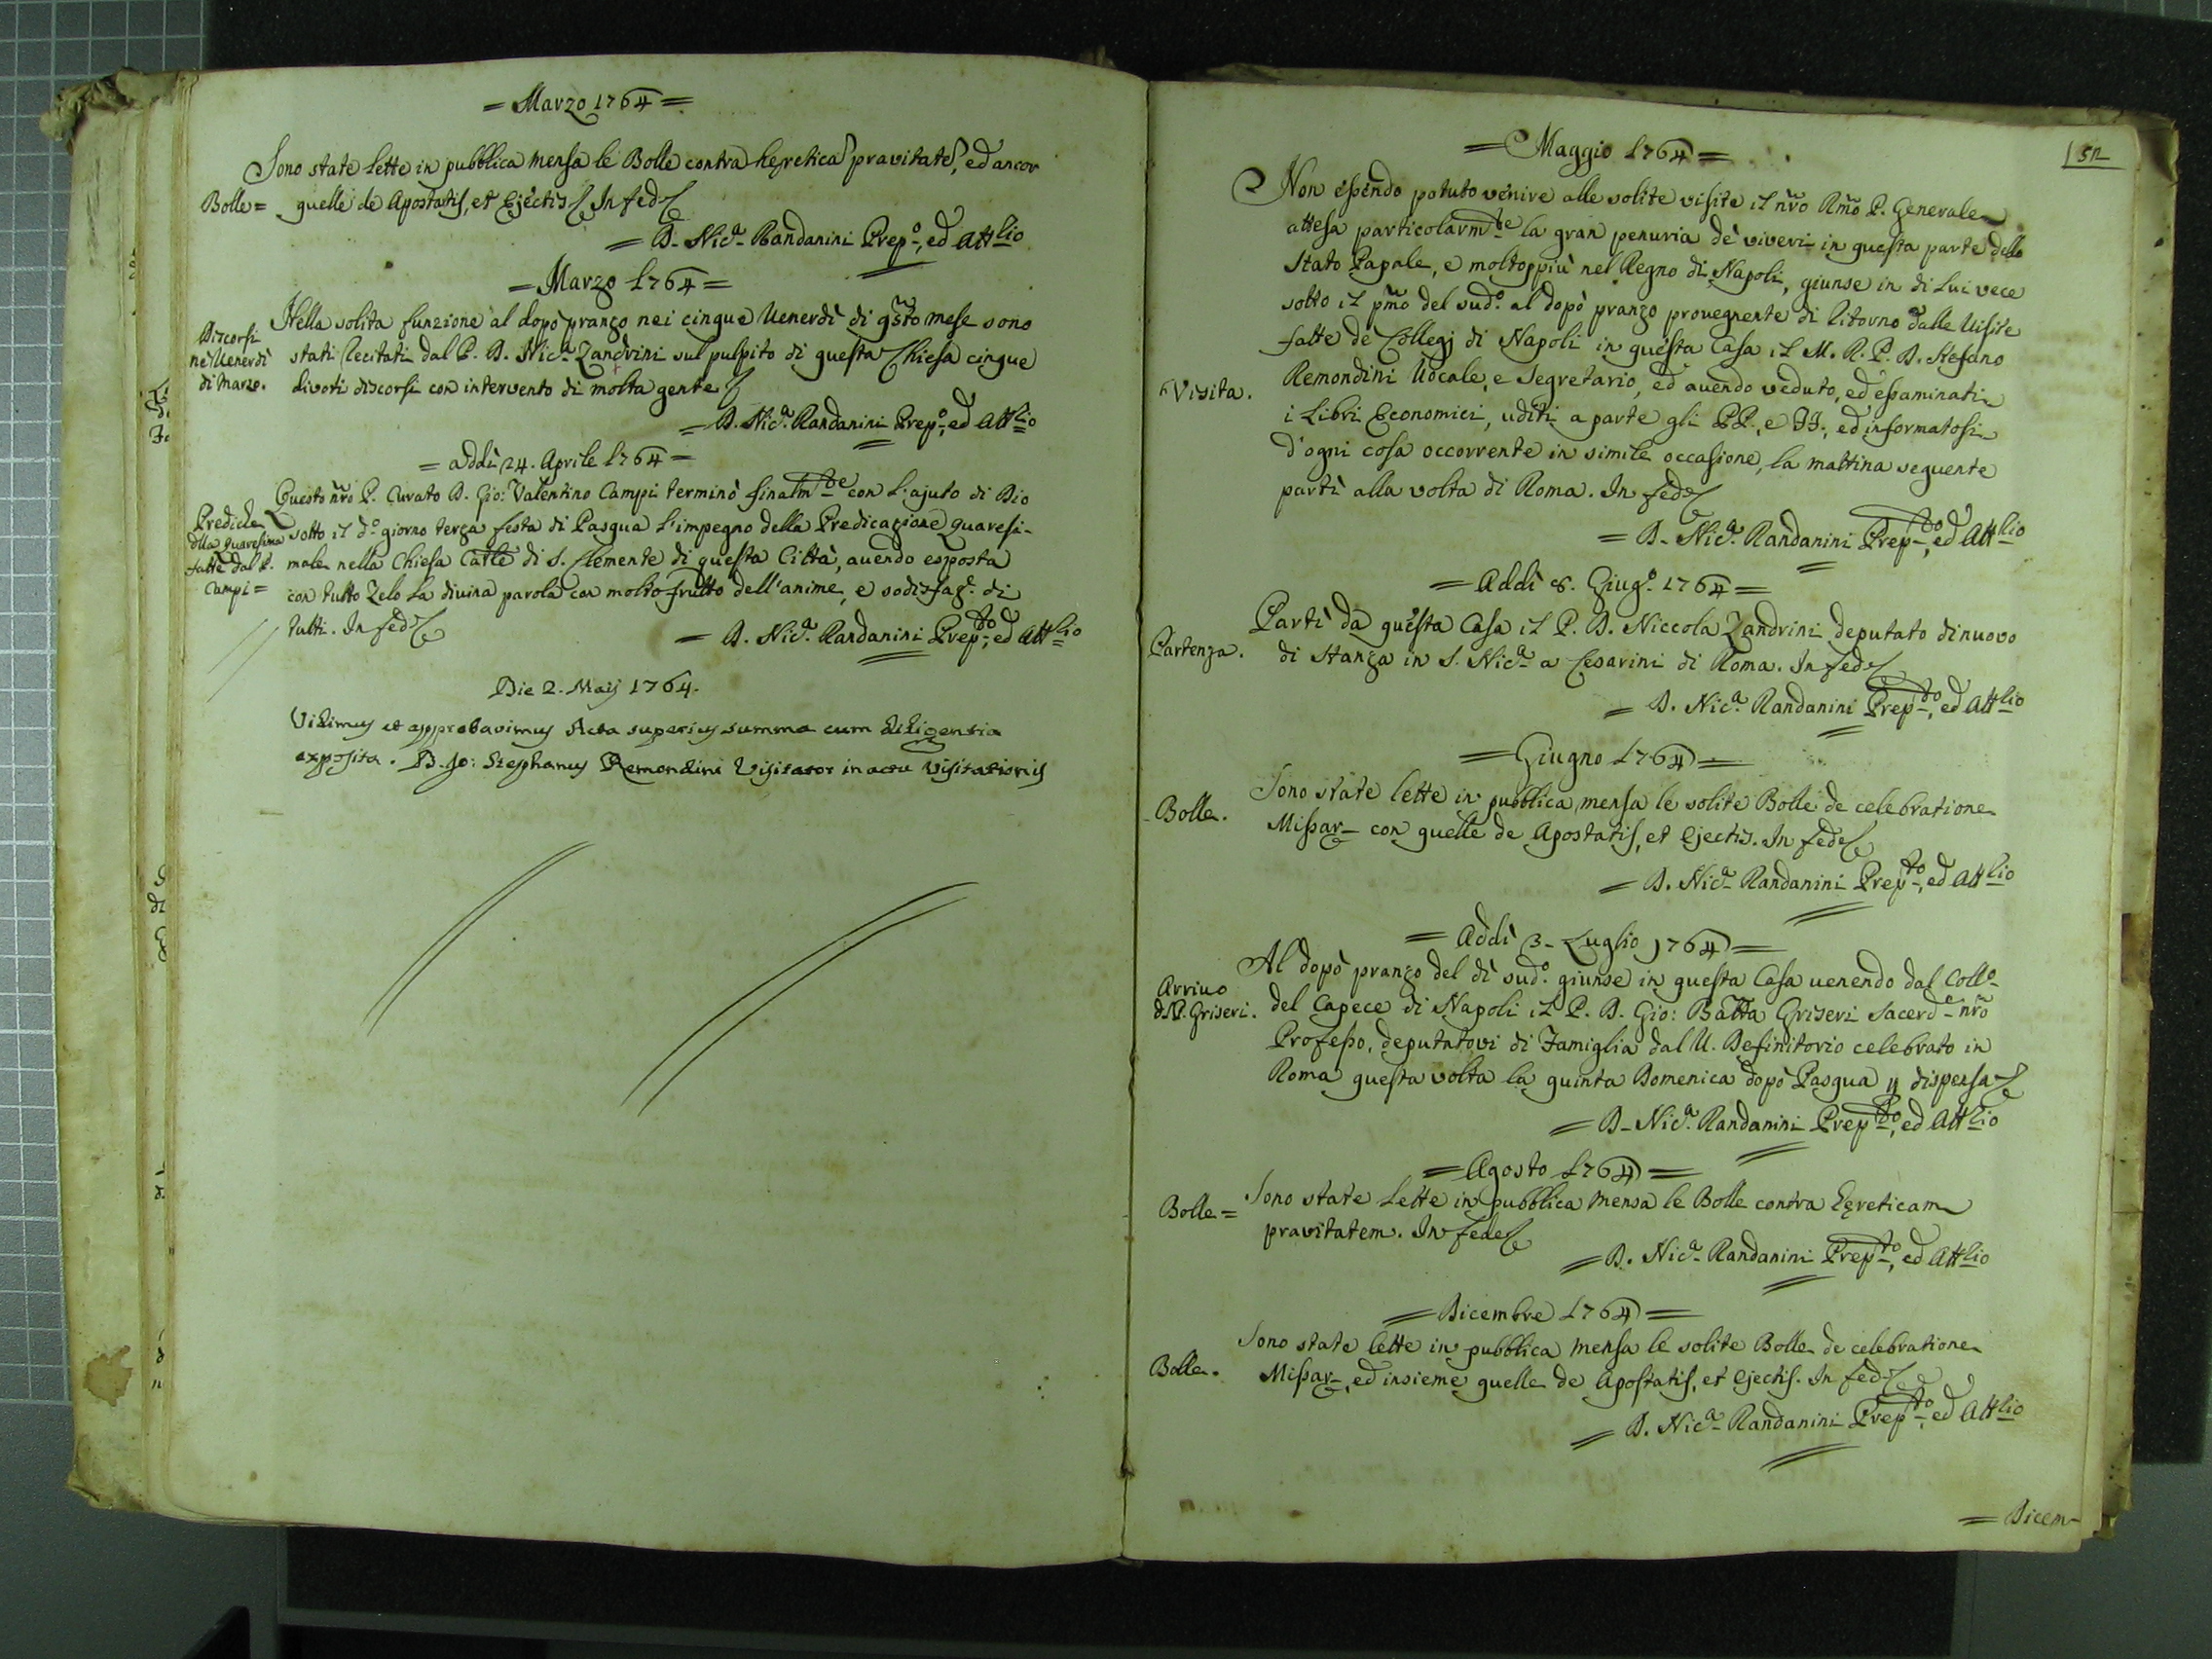 = Marzo 1764 =
Sono state lette in pubblica mensa le Bolle contra hereticã pravitatẽ, ed ancor
Bolle = quelle de Apostatis, et Ejectis. In fede
= D. Nic.ª Randanini Prep.º, ed Att.lio
= Marzo 1764 =
Nella solita funzione al dopo pranzo nei cinque Venerdì di q̃sto mese sono
Discorsi
ne' Venerdì
di Marzo.
stati recitati dal P. D. Nic.ª Zandrini sul pulpito di questa Chiesa cinque
divoti discorsi con intervento di molta gente
= D. Nic.ª Randanini Prep.º, ed Att.lio
= addì 24. Aprile 1764 =
Questo ñro P. Curato D. Gio: Valentino Campi terminò finalm.te con l'ajuto di Dio
Prediche
della Quaresima
fatte dal P.
Campi =
sotto il d.º giorno terza festa di Pasqua l'impegno della Predicazione Quaresi-
male nella Chiesa Catt.le di S. Clemente di questa Città, avendo esposta
con tutto Zelo la divina parola con molto frutto dell'anime, e sodisfaz.e di
tutti. In fede
= D. Nic.ª Randanini Prep.to, ed Att.lio
Die 2. Maij 1764.
Vidimus et approbavimus Acta superius summa cum diligentia
exposita. D. Jo: Stephanus Remondini Visitator in actu Visitationis
152
= Maggio 1764 =
Non essendo potuto venire alle solite visite il ñro Rm̃o P. Generale
attesa particolarm.te la gran penuria de' viveri in questa parte dello
Stato Papale, e moltoppiù nel Regno di Napoli, giunse in di lui vece
sotto il pm̃o del sud.º al dopo pranzo provegnente di ritorno dalle Visite
fatte de' Collegj di Napoli in questa Casa il M. R. P. D. Stefano
Visita.
Remondini Vocale, e Segretario, ed avendo veduto, ed essaminati
i Libri Economici, uditi a parte gli PP., e FF., ed informatosi
d'ogni cosa occorrente in simile occasione, la mattina seguente
partì alla volta di Roma. In fede
= D. Nic.ª Randanini Prep.to, ed Att.lio
= Addì 8. Giug.º 1764 =
Partì da questa Casa il P. D. Niccola Zandrini deputato dinuovo
Partenza.
di Stanza in S. Nic.ª a Cesarini di Roma. In fede
= D. Nic.ª Randanini Prep.to, ed Att.lio
= Giugno 1764 =
Sono state lette in pubblica mensa le solite Bolle de celebratione
Bolle.
Missar. con quelle de Apostatis, et Ejectis. In fede
= D. Nic.ª Randanini Prep.to, ed Att.lio
= Addì 3. Luglio 1764 =
Al dopo pranzo del dì sud.º giunse in questa Casa venendo dal Coll.º
Arrivo
d. P. Griseri.
del Capece di Napoli il P. D. Gio: Batta Griseri Sacerd.e ñro
Professo, deputatovi di Famiglia dal V. Definitorio celebrato in
Roma questa volta la quinta Domenica dopo Pasqua p dispensa
= D. Nic.ª Randanini Prep.to, ed Att.lio
= Agosto 1764 =
Sono state lette in pubblica mensa le Bolle contra hereticam
Bolle =
pravitatem. In fede
= D. Nic.ª Randanini Prep.to, ed Att.lio
= Dicembre 1764 =
Sono state lette in pubblica mensa le solite Bolle de celebratione
Bolle.
Missar., ed insieme quelle de Apostatis, et Ejectis. In fede
= D. Nic.ª Randanini Prep.to, ed Att.lio
= Dicem-